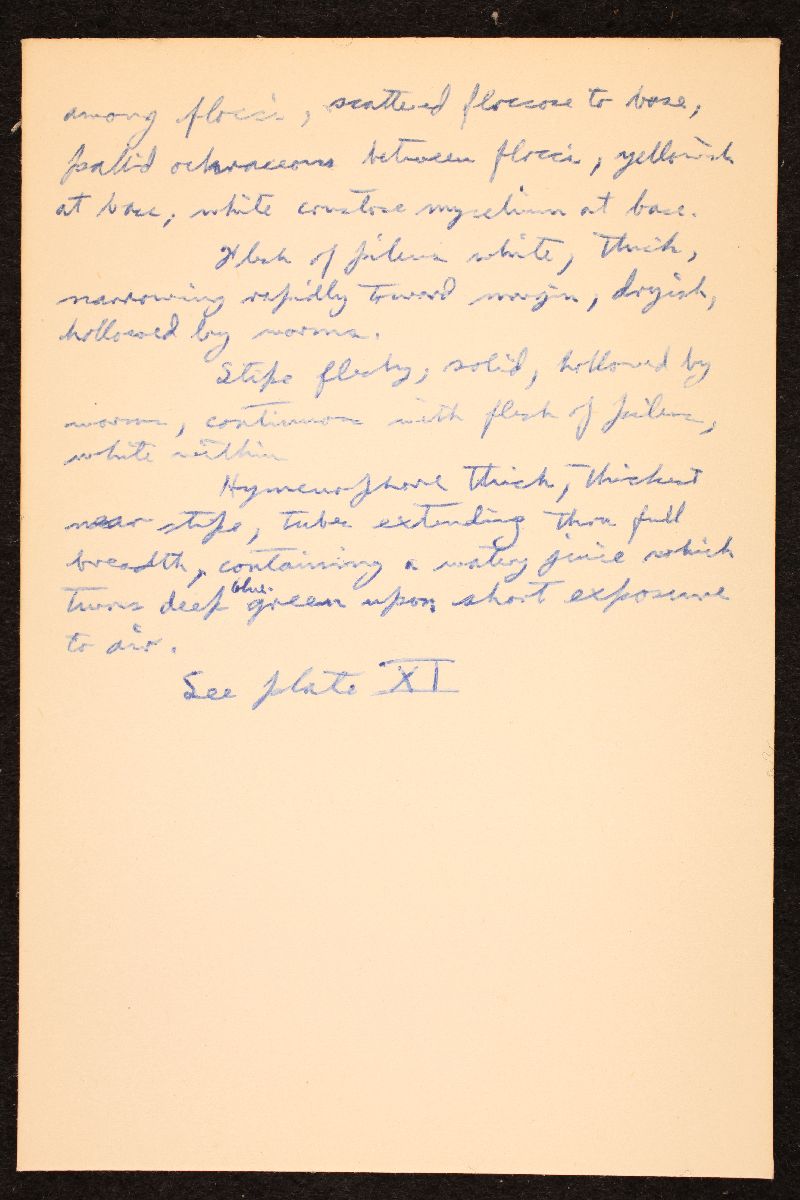 among flocci, scattered floccose to base,
pallid ochraceous between flocci, yellowish
at base; white mycelium at base.
Flesh of pileus white, thick,
narrowing rapidly toward margin, dryish,
hollowed by worms.
Stipe fleshy, solid, hollowed by
worms, continuous with flesh of pileus,
white within
Hymenophore thick, thickest
near stipe, tubes extending thru full
breadth, containing a watery juice which
turns deep blue-green upon short exposure
to air.
See plate XI